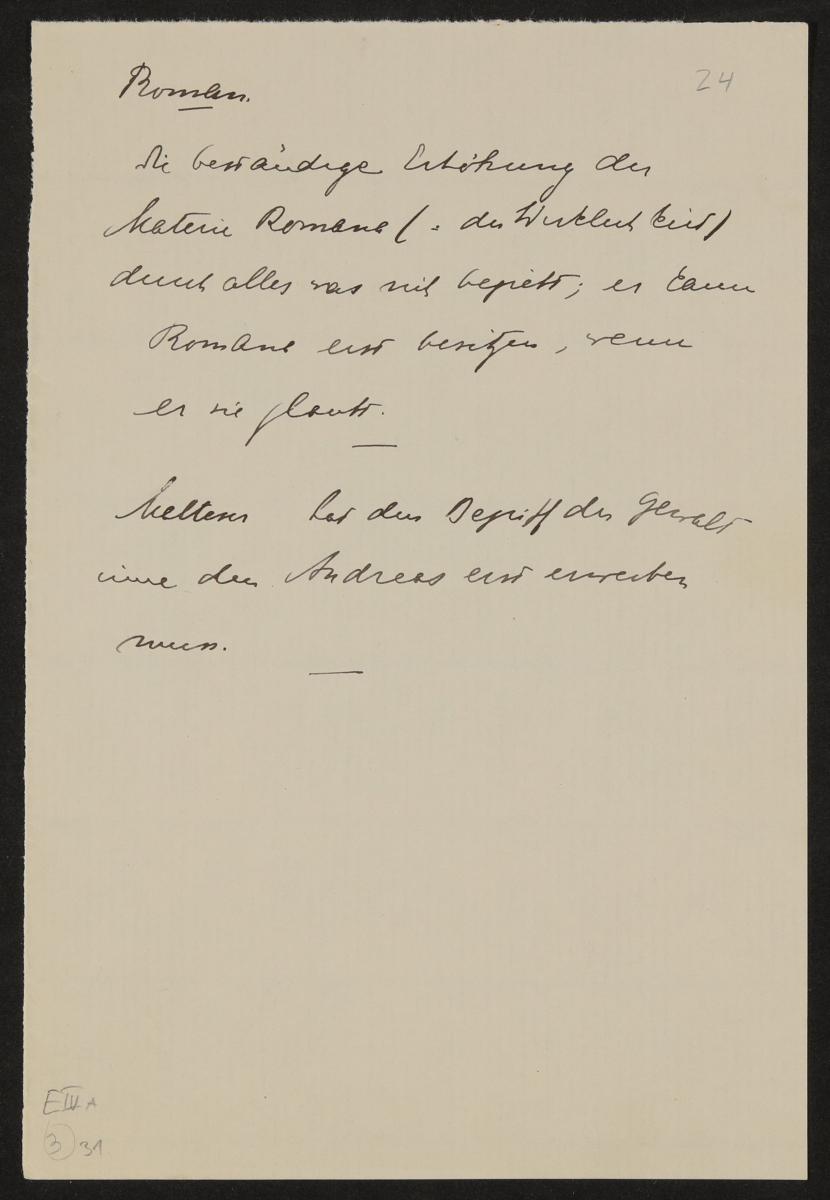 24
Roman.
die beständige Erhöhung der
Materie Romana (= der Wirklichkeit)
durch alles was sich begiebt; er kann
Romana erst besitzen, wenn
er sie glaubt.
Malteser hat den Begriff der Gewalt
inne den Andreas erst erwerben
muss.
E III A
3 31